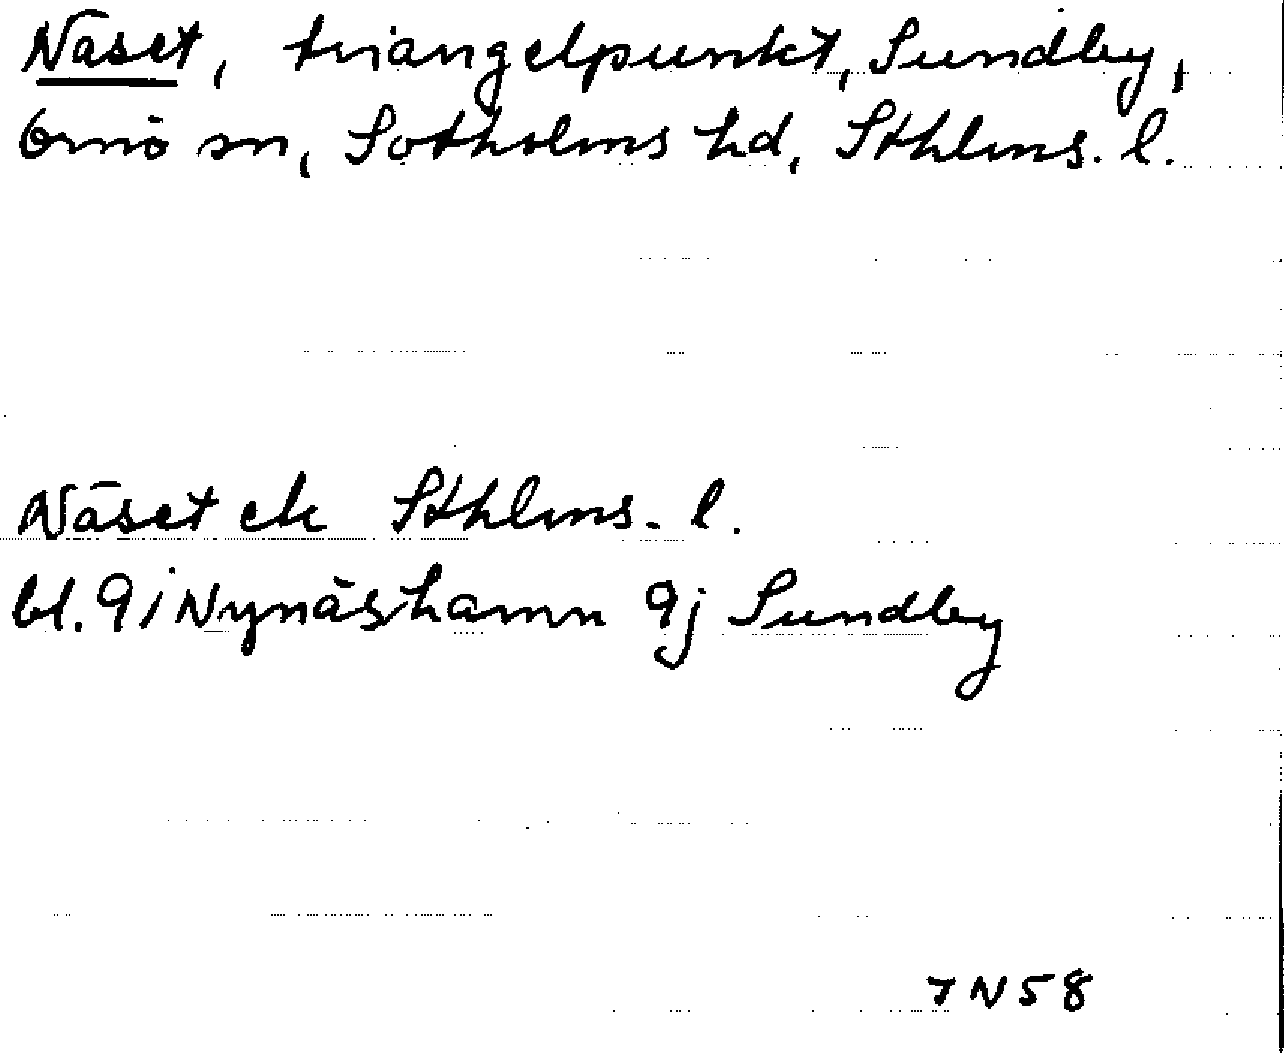 Näset, triangelpunkt, Sundby,
Ornö sn, Sotholms hd, Sthlms. l.
Näset ek Sthlms. l.
bl. 9i Nynäshamn 9j Sundby
7 N 58